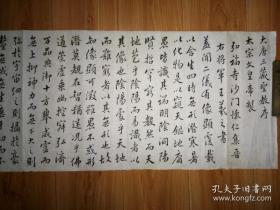 大唐三藏聖教序
太宗文皇帝製
弘福寺沙門懷仁集晉
右將軍王羲之書
蓋聞二儀有像顯覆載
以含生四時無形潛寒暑
以化物是以窺天鑑地庸
愚皆識其端明陰洞陽
賢哲罕窮其數然而天
地苞乎陰陽而易識者以
其有像也陰陽處乎天地
而難窮者以其無形也故
知像顯可徵雖愚不惑形
潛莫覩在智猶迷況乎佛
道崇虛乘幽控寂弘濟
萬品典御十方舉威靈而
無上抑神力而無下大之則
彌於宇宙細之則攝於豪
釐無滅無生